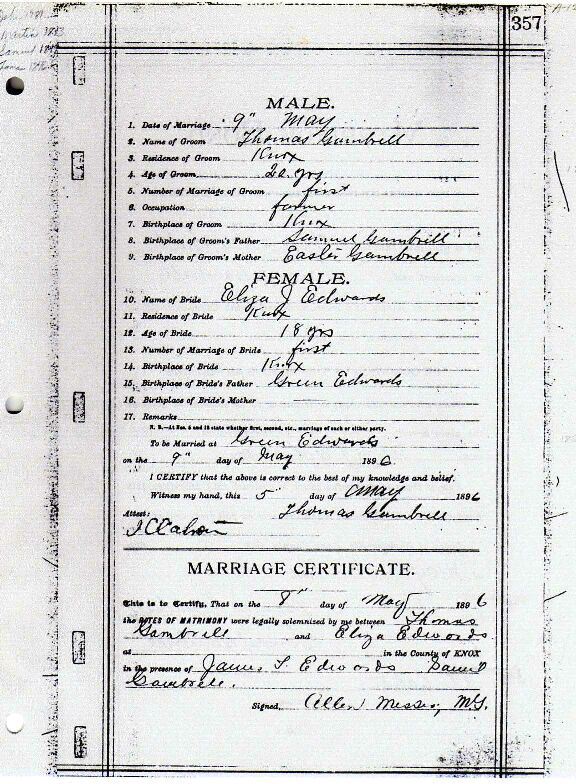 357
MALE.
1. Date of Marriage 9" May
2. Name of Groom Thomas Gambrell
3. Residence of Groom Knox
4. Age of Groom 20 yrs
5. Number of Marriage of Groom first
6. Occupation farmer
7. Birthplace of Groom Knox
8. Birthplace of Groom's Father Samuel Gambrill
9. Birthplace of Groom's Mother Easler Gambrell
FEMALE.
10. Name of Bride Eliza J Edwards
11. Residence of Bride Knox
12. Age of Bride 18 yrs
13. Number of Marriage of Bride first
14. Birthplace of Bride Knox
15. Birthplace of Bride's Father Green Edwards
16. Birthplace of Bride's Mother
17. Remarks
N. B.—At Nos. 5 and 13 state whether first, second, etc., marriage of each or either party.
To be Married at Green Edwards
on the 9" day of May 1896
I CERTIFY that the above is correct to the best of my knowledge and belief.
Witness my hand, this 5" day of May 1896
Attest: Thomas Gambrell
MARRIAGE CERTIFICATE.
This is to Certify, That on the 8" day of May 1896
the RITES OF MATRIMONY were legally solemnized by me between Thomas
Gambrill and Eliza Edwards
at in the County of KNOX
in the presence of James S. Edwards Samuel
Gambrell.
Signed, Allen Messer, M.G.